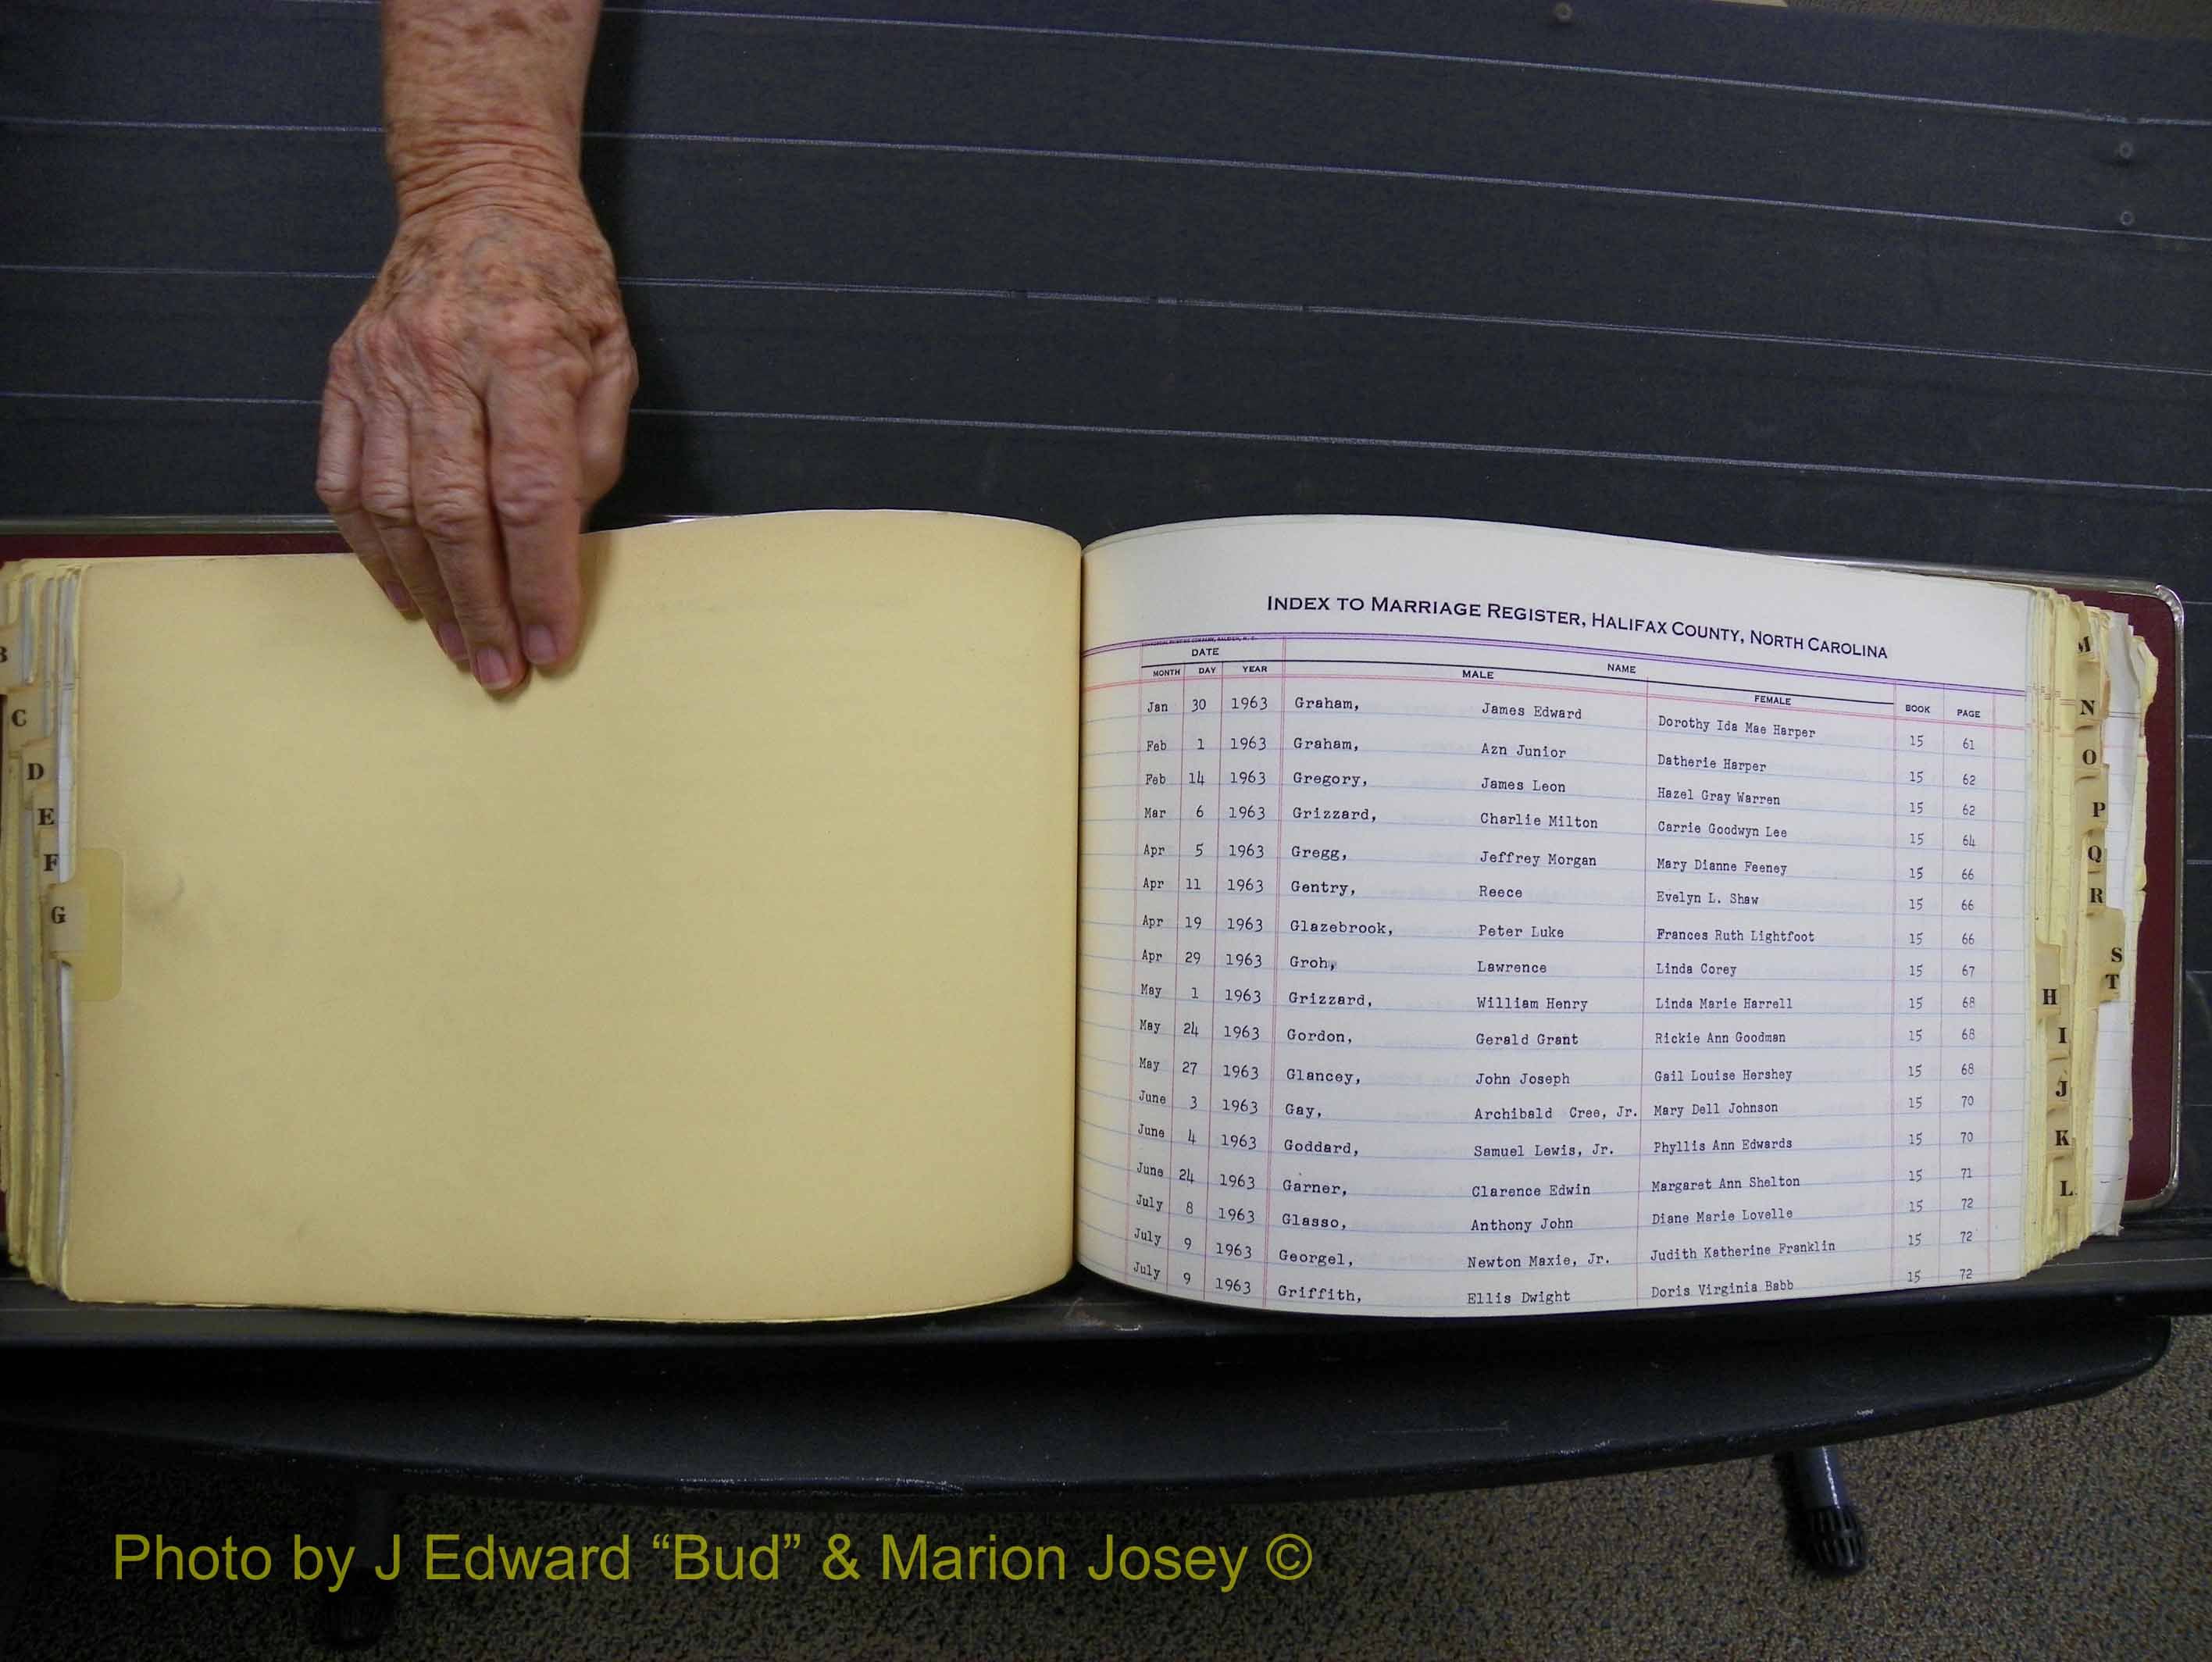 INDEX TO MARRIAGE REGISTER, HALIFAX COUNTY, NORTH CAROLINA
DATE NAME
MONTH DAY YEAR MALE FEMALE BOOK PAGE
Jan 30 1963 Graham, James Edward Dorothy Ida Mae Harper 15 61
Feb 1 1963 Graham, Azn Junior Datherie Harper 15 62
Feb 14 1963 Gregory, James Leon Hazel Gray Warren 15 62
Mar 6 1963 Grizzard, Charlie Milton Carrie Goodwyn Lee 15 64
Apr 5 1963 Gregg, Jeffrey Morgan Mary Dianne Feeney 15 66
Apr 11 1963 Gentry, Reece Evelyn L. Shaw 15 66
Apr 19 1963 Glazebrook, Peter Luke Frances Ruth Lightfoot 15 66
Apr 29 1963 Groh, Lawrence Linda Corey 15 67
May 1 1963 Grizzard, William Henry Linda Marie Harrell 15 68
May 24 1963 Gordon, Gerald Grant Rickie Ann Goodman 15 68
May 27 1963 Glancey, John Joseph Gail Louise Hershey 15 68
June 3 1963 Gay, Archibald Cree, Jr. Mary Dell Johnson 15 70
June 4 1963 Goddard, Samuel Lewis, Jr. Phyllis Ann Edwards 15 70
June 24 1963 Garner, Clarence Edwin Margaret Ann Shelton 15 71
July 8 1963 Glasso, Anthony John Diane Marie Lovelle 15 72
July 9 1963 Georgel, Newton Maxie, Jr. Judith Katherine Franklin 15 72
July 9 1963 Griffith, Ellis Dwight Doris Virginia Babb 15 72
B
C
D
E
F
G
H
I
J
K
L
M
N
O
P
Q
R
S
T
Photo by J Edward “Bud” & Marion Josey ©